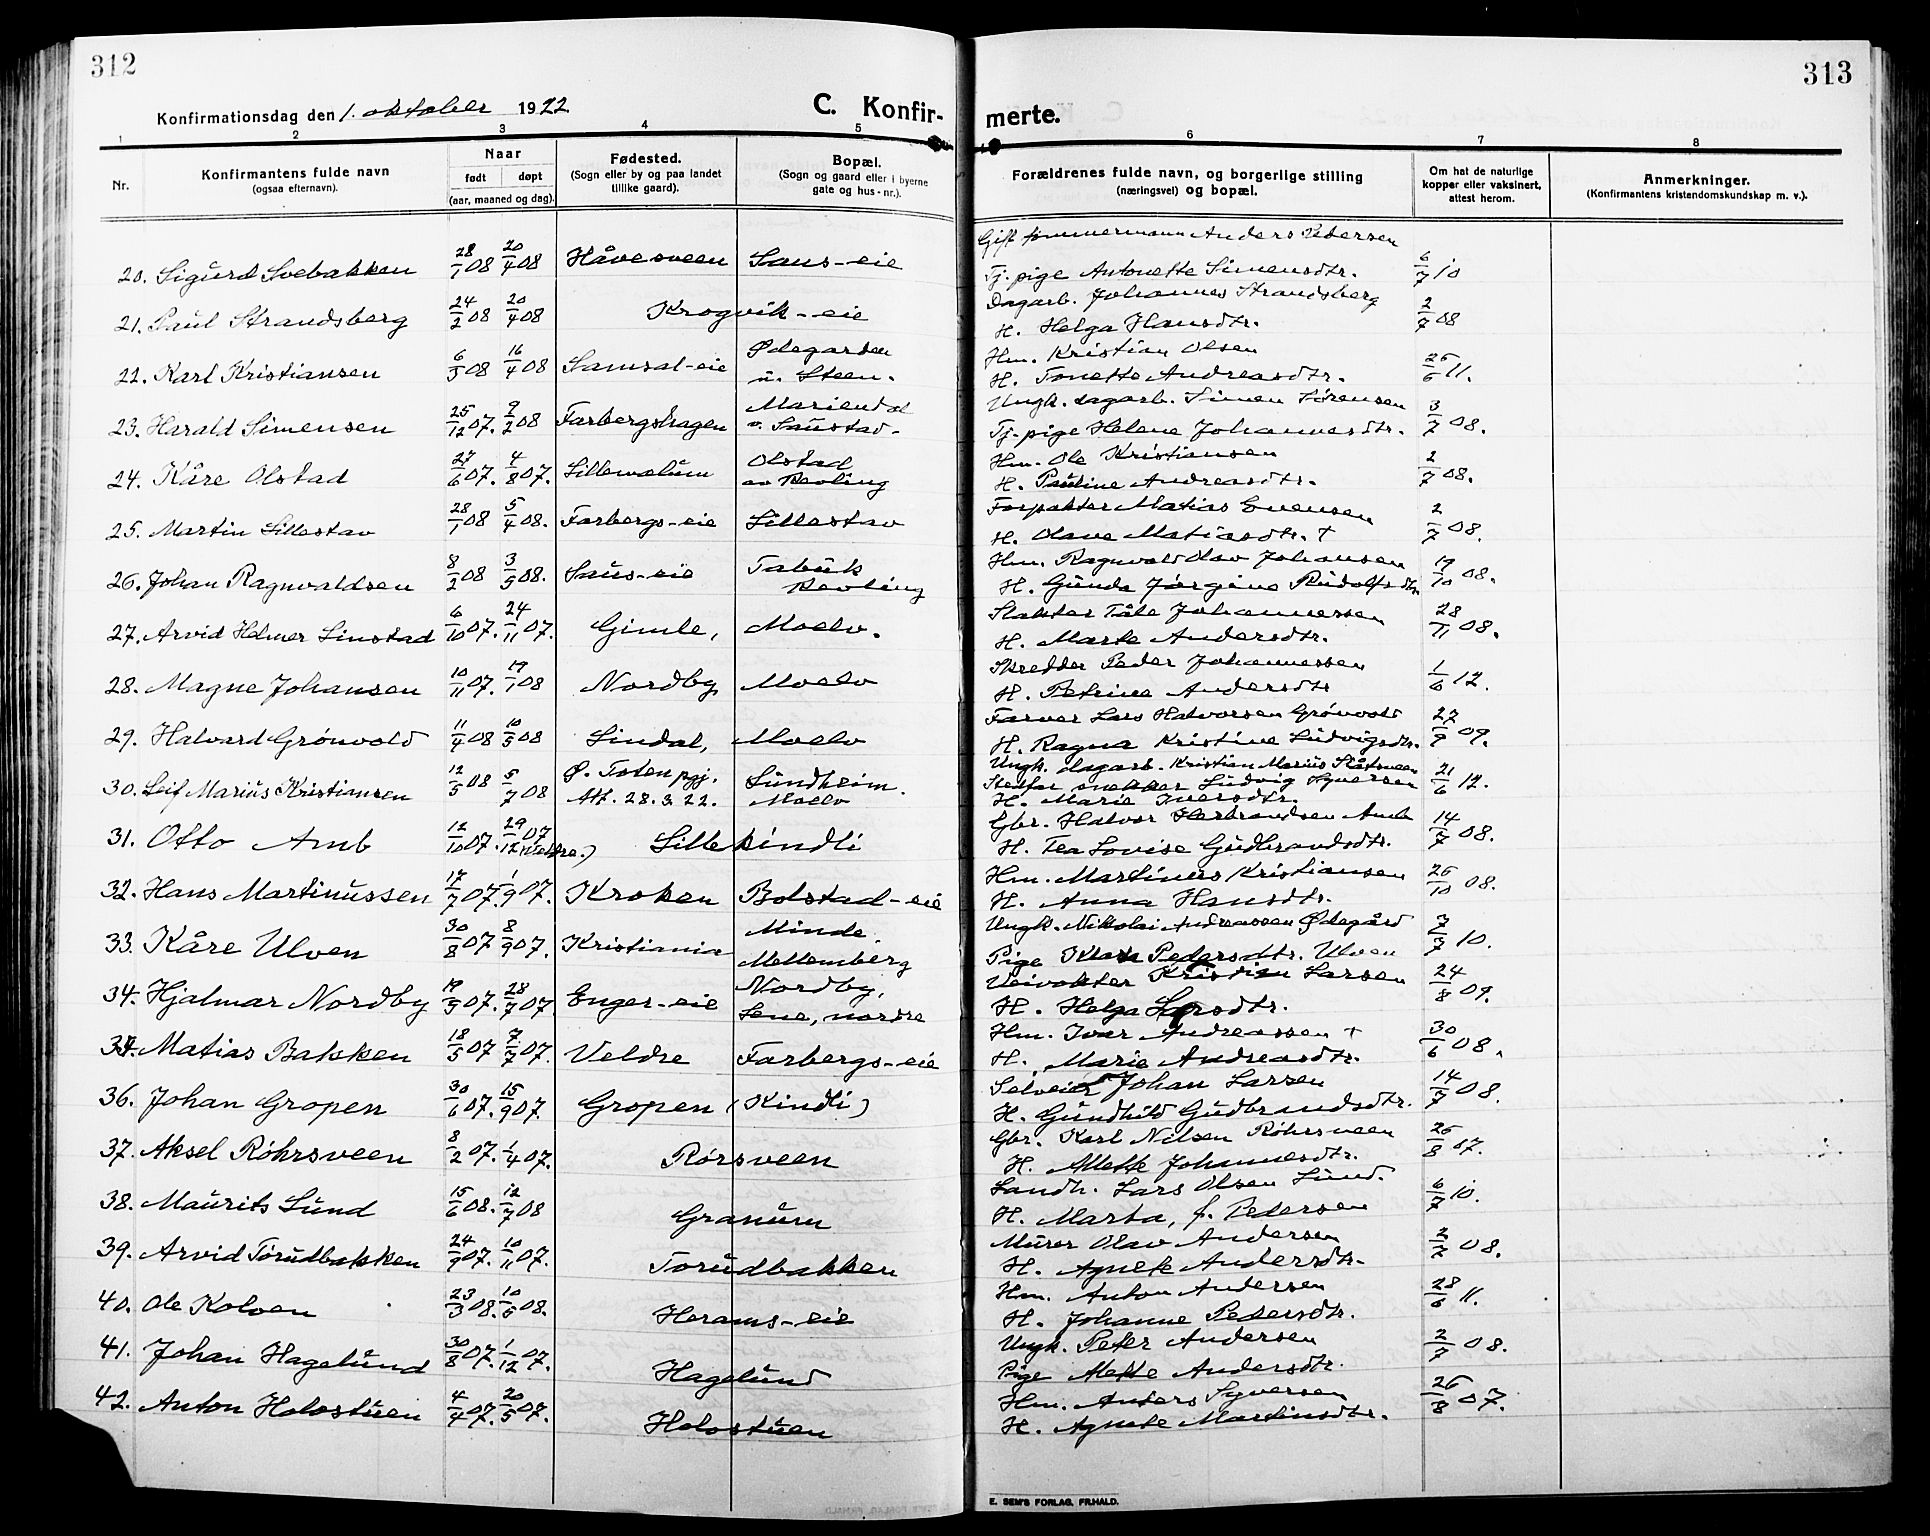 312
Konfirmationsdag den 1. oktober 1922
C. Konfir-
1 2 3 4 5
Nr.
Konfirmantens fulde navn
(ogsaa efternavn).
Naar
født døpt
(aar, maaned og dag).
Fødested.
(Sogn eller by og paa landet
tillike gaard).
Bopæl.
(Sogn og gaard eller i byerne
gate og hus-nr.).
20. Sigurd Svebakken 28/1 08 20/4 08 Håvesveen Saus-eie
21. Paul Strandsberg 24/2 08 20/4 08 Krogvik-eie
22. Karl Kristiansen 6/3 08 16/4 08 Samsal-eie Ødegarden
u. Steen.
23. Harald Simensen 25/12 07. 9/2 08 Farbergshagen Mariendal
v. Saustad.
24. Kåre Olstad 27/6 07. 4/8 07. Lillemælum Olstad
av Revling
25. Martin Lillestav 28/1 08 5/4 08. Farbergs-eie Lillestav
26. Johan Ragnvaldsen 8/2 08 3/5 08. Saus-eie Tabuk
Revling
27. Arvid Helmer Linstad 6/10 07. 24/11 07. Gimle, Moelv.
28. Magne Johansen 10/11 07. 19/1 08 Nordby Moelv
29. Halvard Grönvold 11/4 08 10/5 08 Lindal, Moelv
30. Leif Marius Kristiansen 12/5 08 5/7 08 Ø. Toten pgj. Sundheim.
Att. 28.3.22. Moelv
31. Otto Amb 12/10 07. 29/12 07 (Veldre.) Lillekindli
32. Hans Martinussen 17/7 07. 1/9 07. Kroken Bolstad-eie
33. Kåre Ulven 30/8 07. 8/9 07. Kristiania Minde,
Mellemberg
34. Hjalmar Nordby 19/5 07. 28/7 07. Enger-eie Nordby,
Lene, nordre
35. Matias Bakken 18/5 07 7/7 07. Veldre Farbergs-eie
36. Johan Gropen 30/6 07. 15/9 07. Gropen (Kindli)
37. Aksel Röhrsveen 8/2 07. 1/4 07. Rørsveen
38. Maurits Lund 15/6 08. 12/7 08 Granum
39. Arvid Torudbakken 24/9 07. 10/11 07. Torudbakken
40. Ole Kolven 23/3 08. 10/5 08. Herams-eie
41. Johan Hagelund 30/8 07. 1/12 07. Hagelund
42. Anton Holostuen 4/4 07. 20/5 07. Holostuen
313
merte.
6 7 8
Forældrenes fulde navn, og borgerlige stilling
(næringsvei) og bopæl.
Om hat de naturlige
kopper eller vaksinert,
attest herom.
Anmerkninger.
(Konfirmantens kristendomskundskap m. v.).
Gift tømmermann Anders Pedersen
Tj. pige Antonette Simensdtr. 6/7 10
Dagarb. Johannes Strandsberg
H. Helga Hansdtr. 2/7 08
Hm. Kristian Olsen
H. Tonette Andreasdtr. 25/6 11.
Ungk. dagarb. Simen Sørensen
Tj. pige Helene Johannesdtr. 3/7 08.
Hm. Ole Kristiansen
H. Pauline Andreasdtr. 2/7 08.
Forpakter Matias Evensen
H. Olave Matiasdtr. † 2/7 08.
Hm. Ragnvald Olav Johansen
H. Gunda Jørgine Rudolfsdtr. 19/10 08.
Slakter Tåle Johannessen
H. Marte Andersdtr. 28/11 08.
Skredder Peder Johannessen
H. Petrine Andersdtr 1/6 12.
Farver Lars Halvorsen Grönvold
H. Ragna Kristine Ludvigsdtr. 27/9 09.
Ungk. dagarb. Kristian Marius Slåtsveen
Stedfar snekker Ludvig Syversen 21/6 12.
H. Marie Iversdtr.
Gbr. Halvor Herbrandsen Amb
H. Tea Lovise Gudbrandsdtr. 14/7 08.
Hm. Martinus Kristiansen
H. Anna Hansdtr. 25/10 08.
Ungk. Nikolai Andreassen Ødegård
Pige Klara Pedersdtr. Ulven 7/7 10.
Veivokter Kristian Larsen
H. Helga Larsdtr. 24/8 09.
Hm. Ivar Andreassen †
H. Marie Andreasdtr. 30/6 08.
Selveier Johan Larsen
H. Gundhild Gudbrandsdtr. 14/7 08.
Gbr. Karl Nilsen Röhrsveen
H. Mette Johannesdtr. 26/8 07.
Landh. Lars Olsen Lund.
H. Marta, f. Pedersen 6/7 10.
Murer Olav Andersen
H. Agnete Andersdtr. 2/7 08.
Hm. Anton Andersen
H. Johanne Pedersdtr. 28/6 11.
Ungk. Peter Andersen
Pige Mette Andersdtr. 2/7 08.
Hm. Anders Syversen
H. Agnete Martinsdtr. 26/8 07.
E. SEM'S FORLAG, FR.HALD.